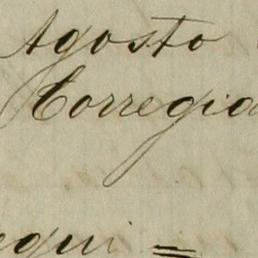 Agosto
Corregid
egui =